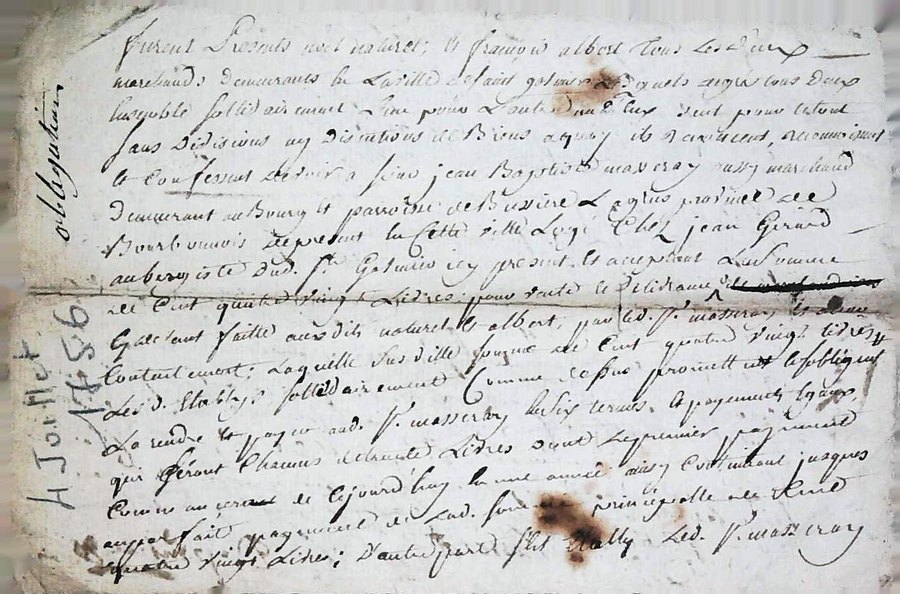 obligation
4 Joillet 1786
furent Presents noel naturel, et françois albert tous les deux
marchands demeurants en La ville de saint galmier Lesquels degrés tous deux
Ensemble sollidairement L'un pour L'autre un d'eux seul pour le tout
sans Divisions ny discutions de Biens aquoy ils renoncent, reconnoissent
et Confessent devoir a sieur jean Baptiste masseray aussy marchand
demeurant au Bourg et parroisse de Bussière province de
Bourbonnois depresent En Cette ville Logé Chez jean Girard
aubergiste dud. St Galmier icy present et acceptant La somme
de Cent quatre vingt Livres pour vente et Délivrance
faitte auxdits naturel et albert, par led. Sr masseray
Contentement; Laquelle susditte somme de Cent quatre vingt Livres
Lesd. Etablys sollidairement Comme dessus promettent et sobligent
La rendre et payer aud. Sr masseray En six termes et payements Egaux,
qui seront Chacuns de trente Livres dont Lepremier payement
Commancera de Cejourdhuy En une année ainsy Continuant jusques
au parfait payement de Lad. somme principalle de Cent
quatre vingt Livres; D'autre part s'est Etably Led. Sr masseray